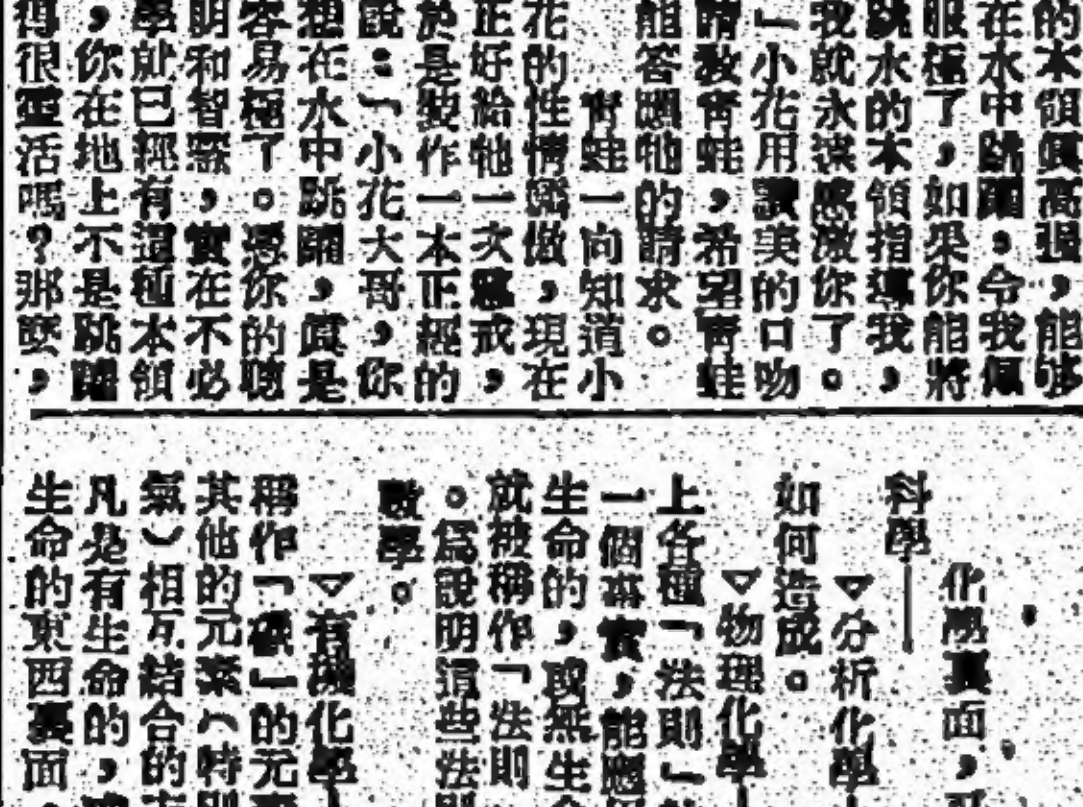 的本領眞高強,能够
在水中跳躍,令我佩
服極了,如果你能將
跳水的本領指導我,
我就永遠感激你了。
」小花用讚美的口吻
請教靑蛙,希望靑蛙
能答應牠的請求。
靑蛙一向知道小
花的性情驕傲,現在
正好給牠一次懲戒,
於是裝作一本正經的
說:「小花大哥,你
想在水中跳躍,眞是
容易極了。憑你的聰
明和智慧,實在不必
學就已經有這種本領
,你在地上不是跳躍
得很靈活嗎?那麼,
化學裏面,
科學——
▽分析化學
如何造成。
▽物理化學
上各種「法則」
一個事實,能應
生命的,或無生
就被稱作「法則
。爲說明這些法則
數學。
▽有機化學
稱作「碳」的元素
其他的元素(特別
氣)相互結合的
凡是有生命的,
生命的東西裏面,